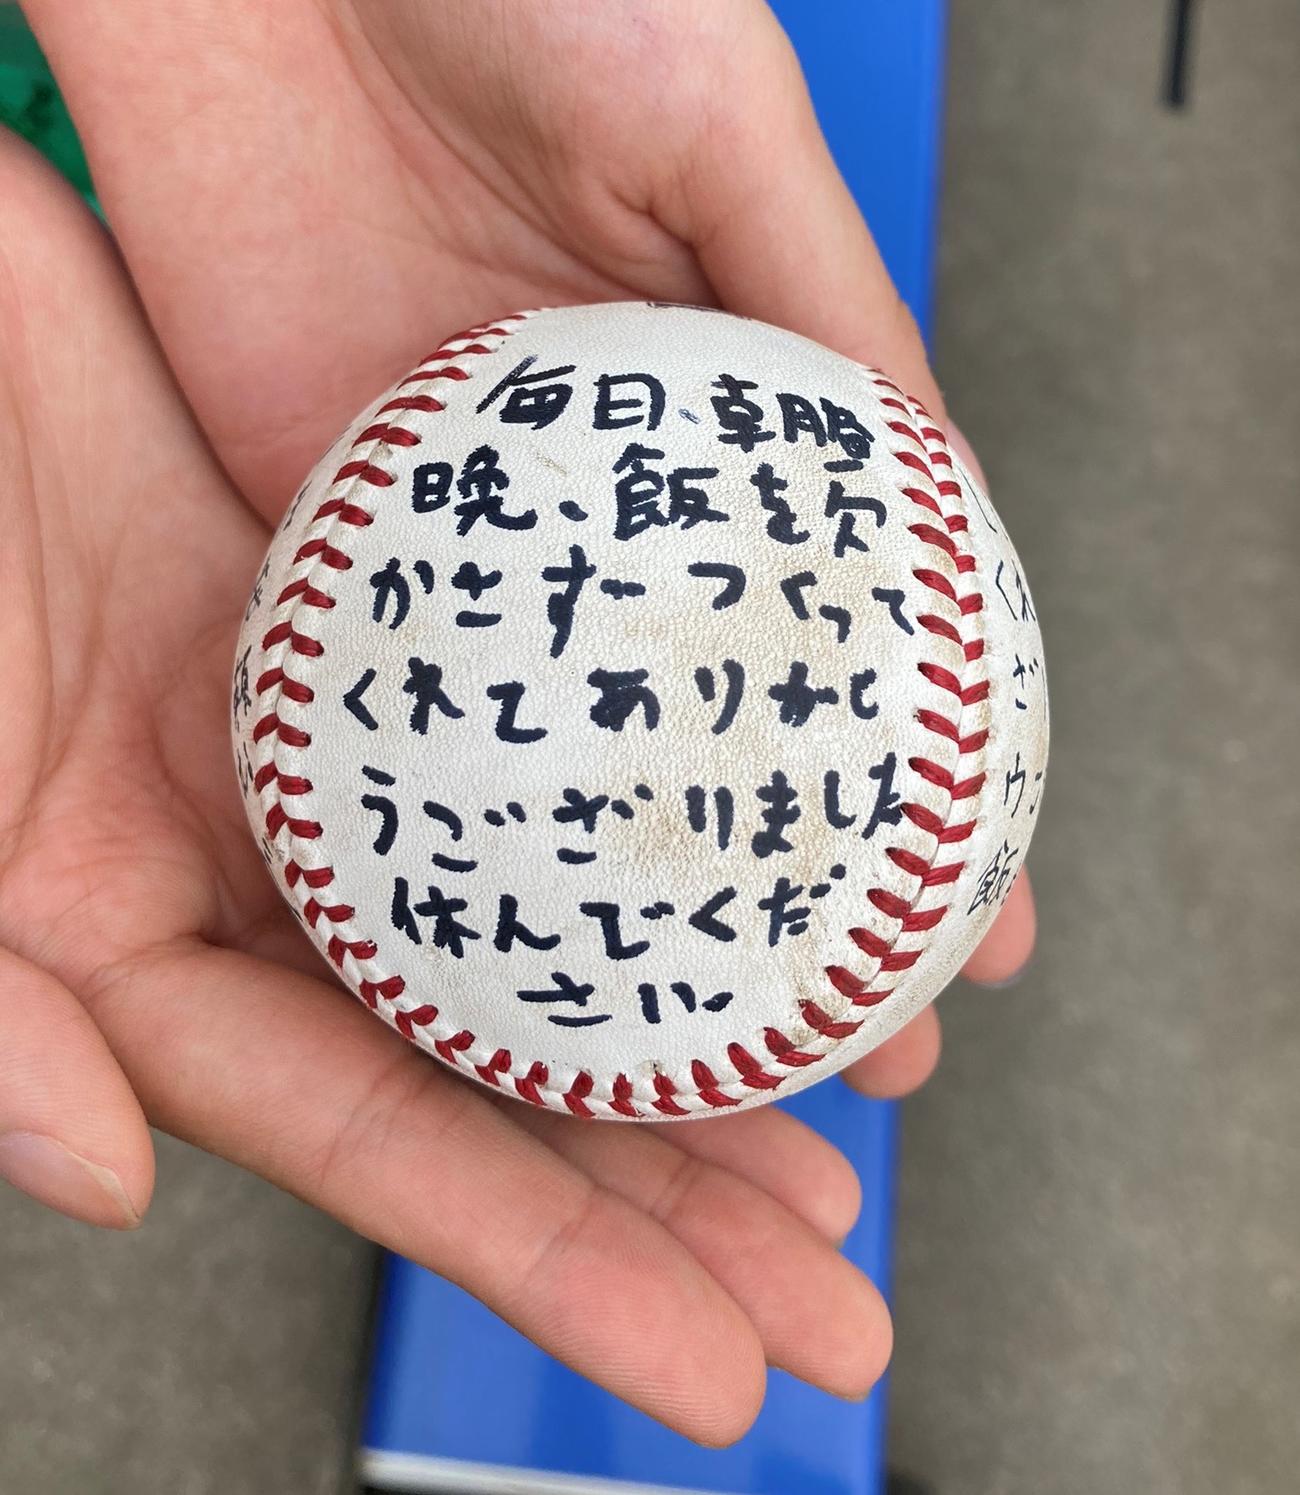 毎日、朝昼
晩、飯を欠
かさずつくって
くれてありがと
うございました
休んでくだ
さい